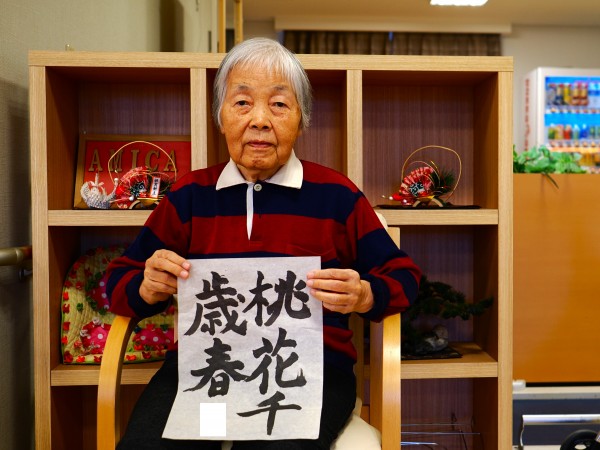 AMICA
桃花千
歳春